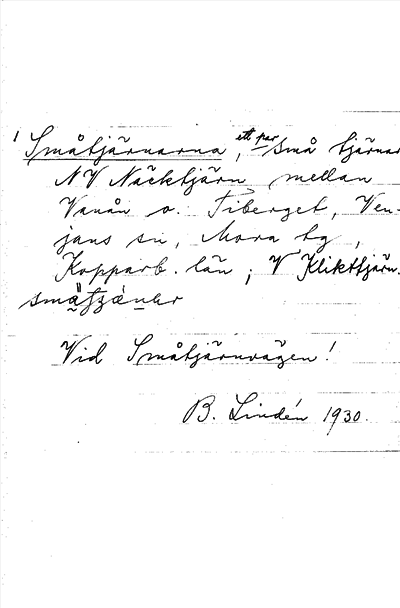 1 Småtjärnarna, ett par små tjärnar
NV Näcktjärn mellan
Vanån o. Fiberget, Ven-
jans sn, Mora tg,
Kopparb. län; V Klikttjärn.
Vid Småtjärnvägen!
B. Lindén 1930.